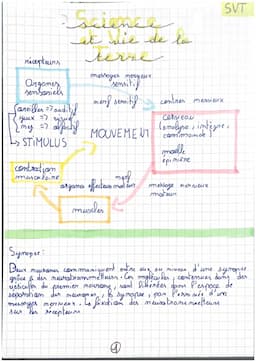 SVT
Science
et Vie de la
Terre
récepteurs
Organes
sensoriels
message nerveux
sensitif
nerf sensitif
centres nerveux
oreilles => auditif
yeux =>
nez => olfactif
STIMULUS
MOUVEMENT
cerveau
(analyse, intègre,
commande)
moelle
épinière
contraction
musculaire
nerf
organe effecteur moteur
message nerveux
moteur
muscles
Synapse:
Deux neurones communiquent entre eux au niveau d'une synapse
grâce à des neurotransmetteurs. Ces molécules, contenues dans des
vésicules du premier neurone, sont libérées dans l'espace de
séparation des neurones, la synapse, par l'arrivée d'un
message nerveux. La fixation des neurotransmetteurs
sur les récepteurs
1